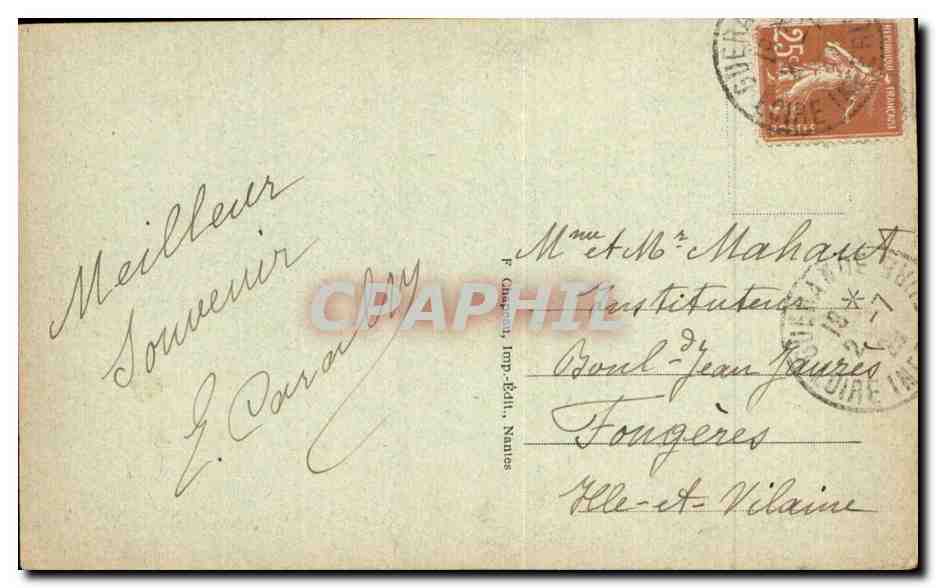 Meilleur
Souvenir
F Chapeau, Imp.-Édit., Nantes
CPAPHIL
25c
REPUBLIQUE FRANÇAISE
POSTES
LOIRE INF
Mme et Mr Mahaut
Instituteurs
Boul. d Jean Jaurès
Fougères
Ille-et-Vilaine
GUERANDE
18 * -7
LOIRE INF